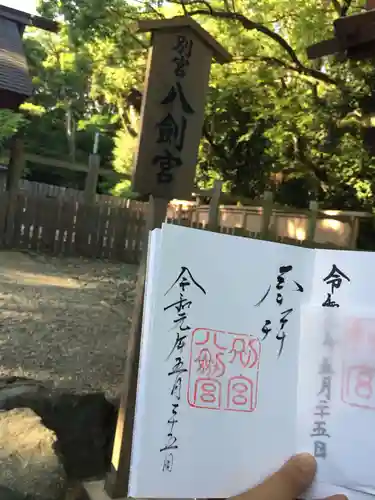 別宮
八劔宮
令和元年五月二十五日
奉拝
別宮
八劔宮
令和元年五月二十五日